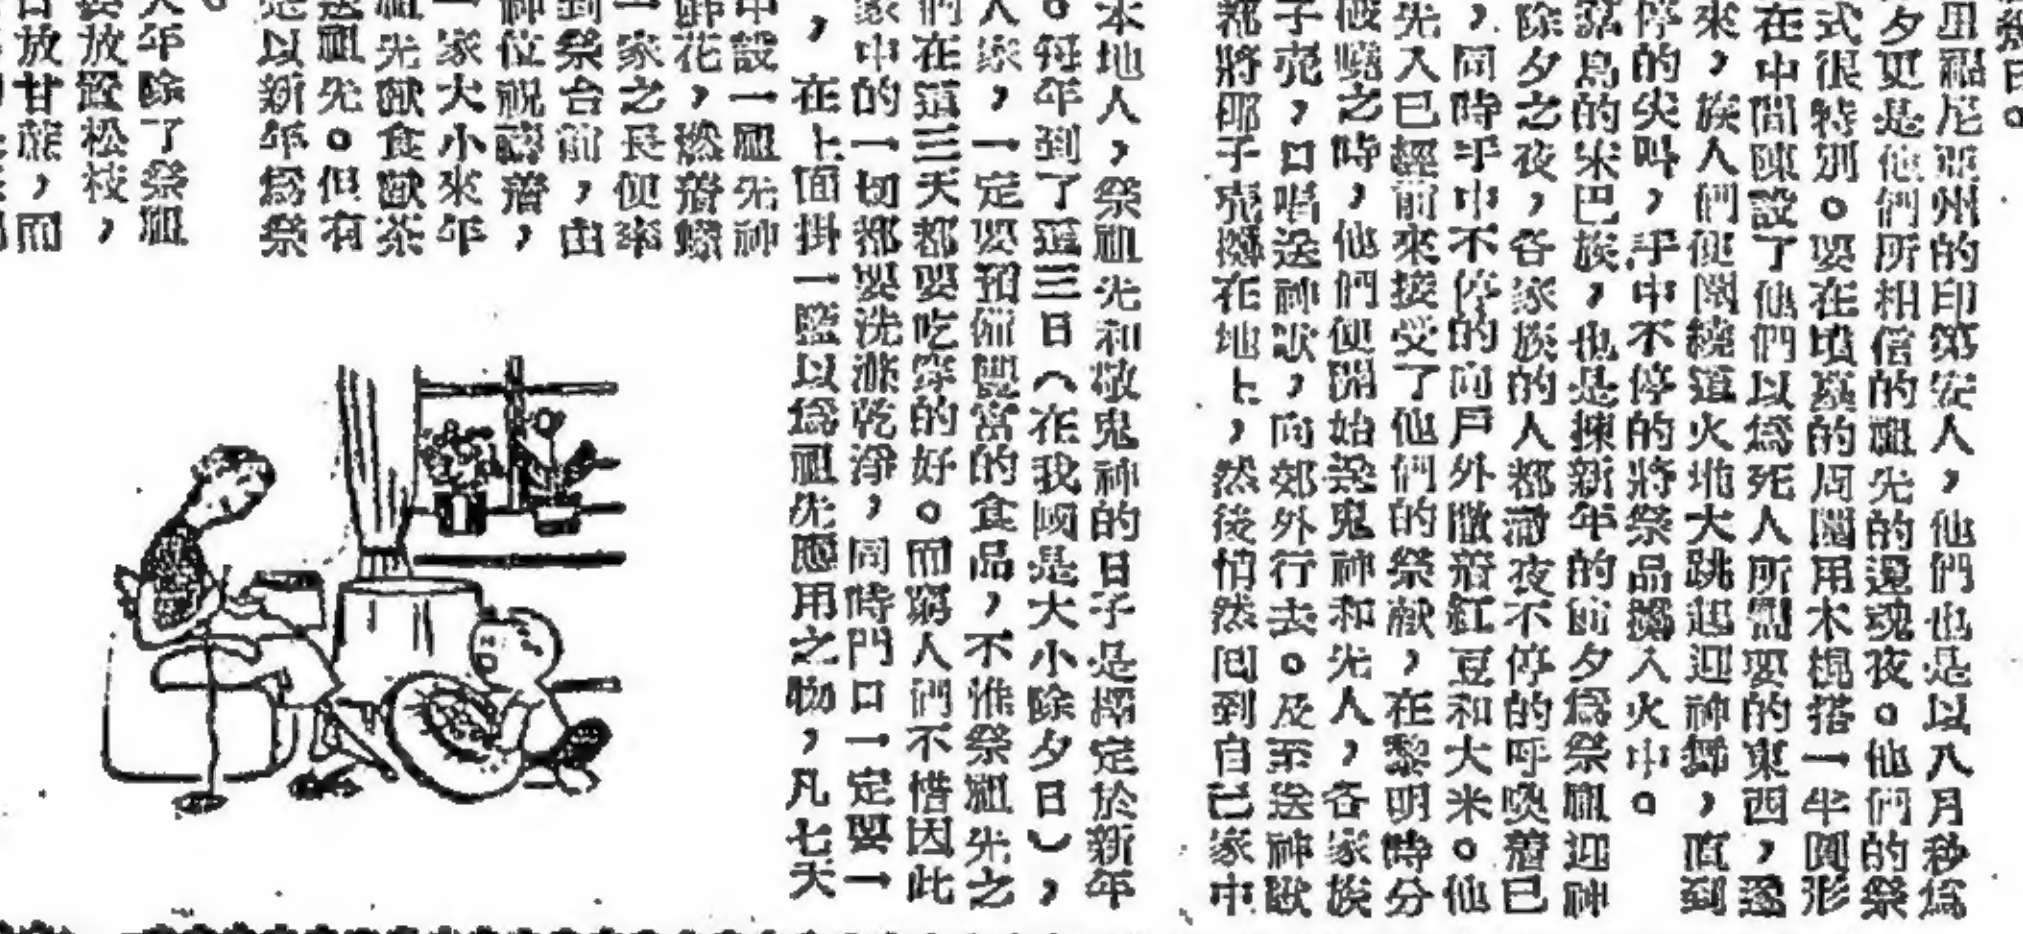 祭日。
里福尼亞州的印第安人，他們也是以八月秒爲
夕更是他們所相信的祖先的還魂夜。他們的祭
式很特別。要在墳墓的周圍用木棍搭一半圓形
在中間陳設了他們以爲死人所需要的東西，逐
來，族人們便圍繞道火堆大跳起迎神舞，直到
停的尖叫，手中不停的將祭品擲入火中。
羣島的米巴族，也是揀新年的前夕爲祭祖迎神
除夕之夜，各家族的人都澈夜不停的呼喚着已
，同時手中不停的向戶外撒着紅豆和大米。他
先人已經前來接受了他們的祭獻，在黎明時分
破曉之時，他們便開始送鬼神和先人，各家族
子壳，口唱送神歌，向郊外行去。及至送神歌
都將椰子壳擲在地上，然後悄然回到自己家中
本地人，祭祖先和敬鬼神的日子是擇定於新年
。每年到了這三日（在我國是大小除夕日），
人家，一定要預備豐富的食品，不惟祭祖先之
們在這三天都要吃穿的好。而窮人們不惜因此
家中的一切都要洗滌乾淨，同時門口一定要一
，在上面掛一籃以爲祖先應用之物，凡七天
中設一祖先神
鮮花，燃着蠟
一家之長便率
到祭台前，由
神位祝禱着，
一家大小來年
祖先獻食獻茶
送祖先。但有
是以新年爲祭
。
大年除了祭祖
要放置松枝，
日放甘蔗，而